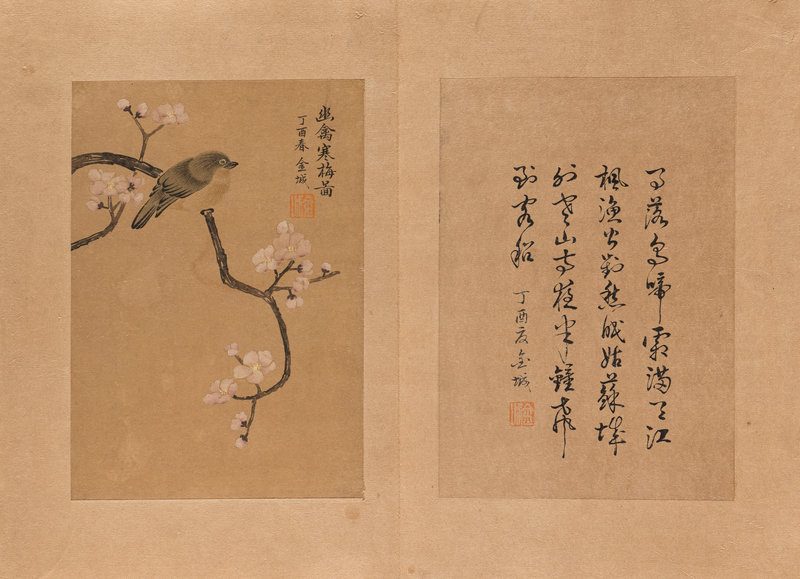 幽禽寒梅啚
丁酉春 金城
月落烏啼霜滿天江
楓漁火對愁眠姑蘇城
外寒山寺夜半鐘聲
到客船
丁酉夏 金城